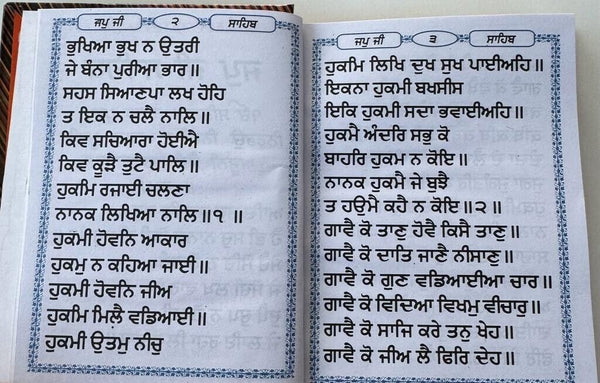 ਜਪੁ ਜੀ ੨ ਸਾਹਿਬ
ਭੁਖਿਆ ਭੁਖ ਨ ਉਤਰੀ
ਜੇ ਬੰਨਾ ਪੁਰੀਆ ਭਾਰ॥
ਸਹਸ ਸਿਆਣਪਾ ਲਖ ਹੋਹਿ
ਤ ਇਕ ਨ ਚਲੈ ਨਾਲਿ॥
ਕਿਵ ਸਚਿਆਰਾ ਹੋਈਐ
ਕਿਵ ਕੂੜੈ ਤੁਟੈ ਪਾਲਿ॥
ਹੁਕਮਿ ਰਜਾਈ ਚਲਣਾ
ਨਾਨਕ ਲਿਖਿਆ ਨਾਲਿ॥੧ ॥
ਹੁਕਮੀ ਹੋਵਨਿ ਆਕਾਰ
ਹੁਕਮੁ ਨ ਕਹਿਆ ਜਾਈ॥
ਹੁਕਮੀ ਹੋਵਨਿ ਜੀਅ
ਹੁਕਮਿ ਮਿਲੈ ਵਡਿਆਈ॥
ਹੁਕਮੀ ਉਤਮੁ ਨੀਚੁ
ਜਪੁ ਜੀ ੩ ਸਾਹਿਬ
ਹੁਕਮਿ ਲਿਖਿ ਦੁਖ ਸੁਖ ਪਾਈਅਹਿ॥
ਇਕਨਾ ਹੁਕਮੀ ਬਖਸੀਸ
ਇਕਿ ਹੁਕਮੀ ਸਦਾ ਭਵਾਈਅਹਿ॥
ਹੁਕਮੈ ਅੰਦਰਿ ਸਭੁ ਕੋ
ਬਾਹਰਿ ਹੁਕਮ ਨ ਕੋਇ॥
ਨਾਨਕ ਹੁਕਮੈ ਜੇ ਬੁਝੈ
ਤ ਹਉਮੈ ਕਹੈ ਨ ਕੋਇ॥੨॥
ਗਾਵੈ ਕੋ ਤਾਣੁ ਹੋਵੈ ਕਿਸੈ ਤਾਣੁ॥
ਗਾਵੈ ਕੋ ਦਾਤਿ ਜਾਣੈ ਨੀਸਾਣੁ॥
ਗਾਵੈ ਕੋ ਗੁਣ ਵਡਿਆਈਆ ਚਾਰ॥
ਗਾਵੈ ਕੋ ਵਿਦਿਆ ਵਿਖਮੁ ਵੀਚਾਰੁ॥
ਗਾਵੈ ਕੋ ਸਾਜਿ ਕਰੇ ਤਨੁ ਖੇਹ॥
ਗਾਵੈ ਕੋ ਜੀਅ ਲੈ ਫਿਰਿ ਦੇਹ॥